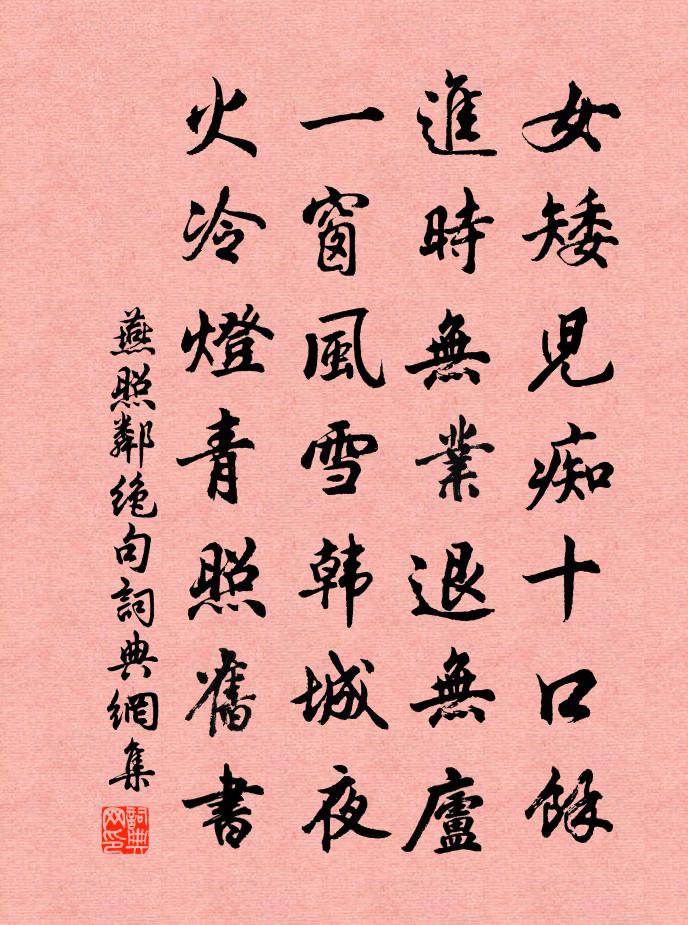 女矮兒痴十口餘
進時無業退無廬
一窗風雪韩城夜
火冷燈青照舊書
燕照鄰绝句詞典網集
詞典网印